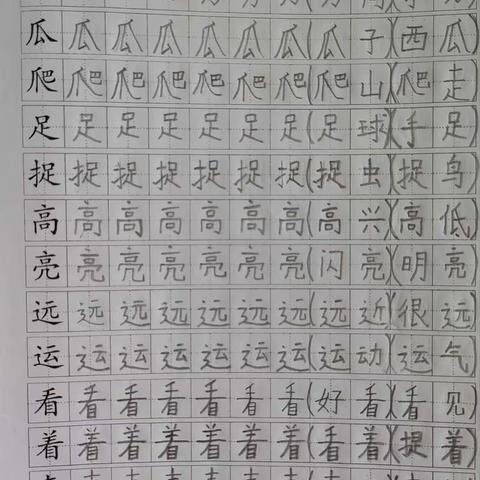 瓜瓜瓜瓜瓜瓜瓜(瓜子)(西瓜)
爬爬爬爬爬爬爬(爬山)(爬走)
足足足足足足足(足球)(手足)
捉捉捉捉捉捉捉(捉虫)(捉鸟)
高高高高高高高(高兴)(高低)
亮亮亮亮亮亮亮(闪亮)(明亮)
远远远远远远远(远近)(很远)
运运运运运运运(运动)(运气)
看看看看看看看(好看)(看见)
着着着着着着着(看着)(捉着)